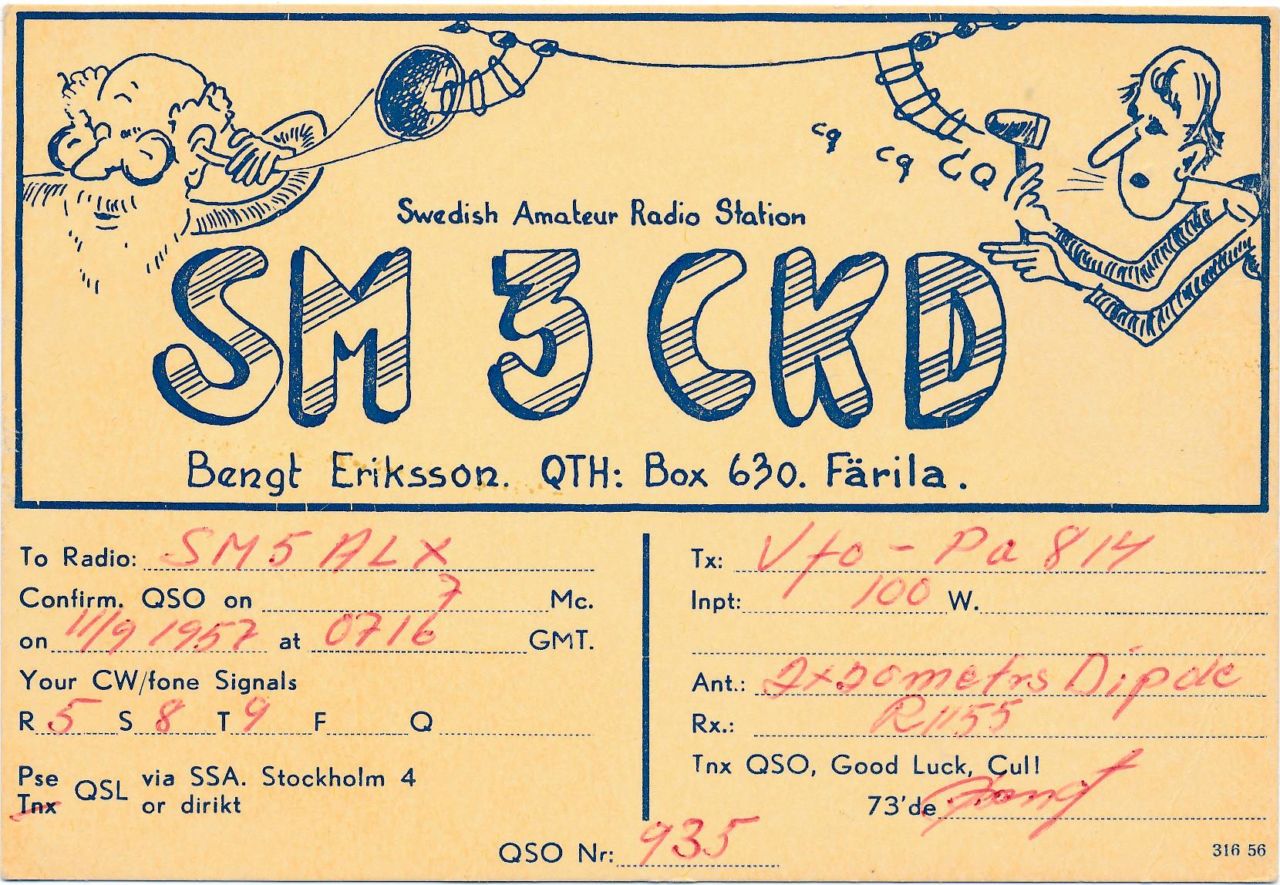 cq cq CQ
Swedish Amateur Radio Station
SM 3 CKD
Bengt Eriksson. QTH: Box 630. Färila.
To Radio: SM5ALX
Confirm. QSO on 7 Mc.
on 11/9 1957 at 0716 GMT.
Your CW/fone Signals
R 5 S 8 T 9 F Q
Pse
Tnx QSL via SSA. Stockholm 4
or dirikt
Tx: Vfo - Pa 814
Inpt: 100 W.
Ant.: 2x20metrs Dipole
Rx.: R1155
Tnx QSO, Good Luck, Cul!
73'de Bengt
QSO Nr: 935
316 56